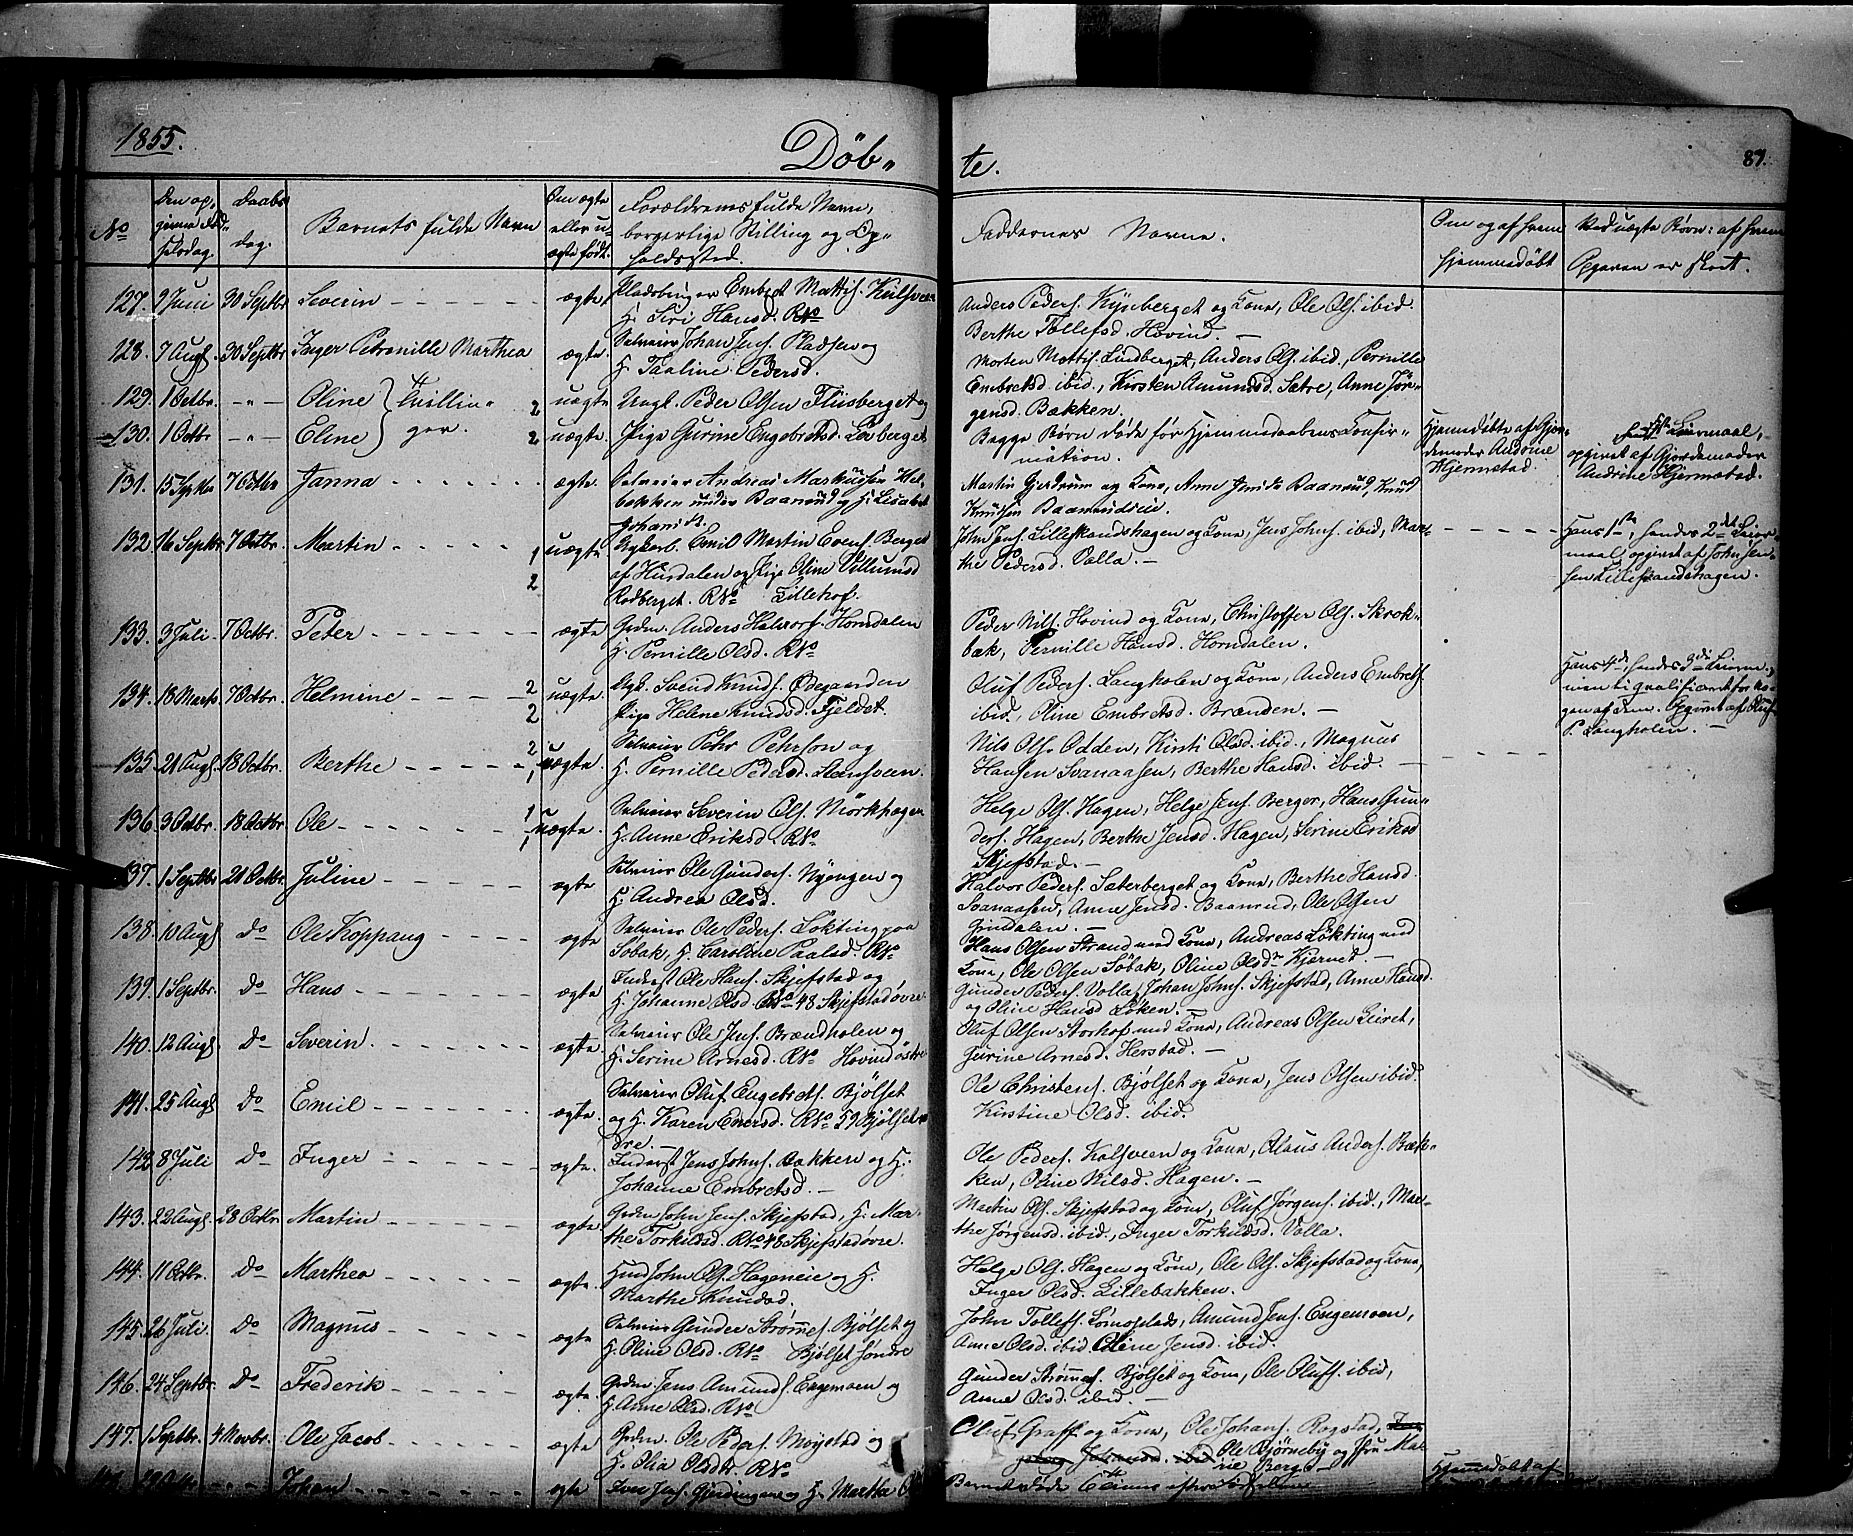 1855.
Döb-
te.
87.
No
Den op-
givne Fød-
selsdag.
Daabs
dag.
Barnets fulde Navn
Om ægte
eller u-
ægte født.
Forældrenes fulde Navn,
borgerlige Stilling og Op-
holdssted.
Faddernes Navne.
Om og af hvem
hjemmedøbt
Ved uægte Børn: af hvem
Opgaven er skeet.
127. 2 Juni 30 Septbr Severin ægte Embret Mattis.
H. Siri Hansd. RNo
Anders Peders. Kynberget og Kone, Ole Ols. ibid.
Berthe Tollefsd. Hovind. —
128. 7 Augs. 30 Septbr Inger Petronille Marthea ægte. Selveier Johan Jens. Pladsen og
H. Pauline Pedersd.
Morten Mattis. Lindberget, Anders Ols. ibid, Pernille
Embretsd. ibid., Kirsten Amundsd. Sætre, Anne Jör-
gensd. Bakken.
129. 1 Octbr. -"- Oline } Tvillin- 2 uægte Ungk. Peder Olsen Fliisberget og
130. 1 Octbr -"- Eline } ger. 2 uægte. Pige Gurine Engebretsd. Lövberget
Begge Börn döde för Hjemmedaabens Confir-
mation.
Hjemmedöbte af Gjor-
demoder Andrine
Hjermstad.
Leiermaal,
opgivet af Gjordemoder
Andrine Hjermstad.
131. 15 Septbr 7 Octbr Janna ægte. Selveier Andreas Markussen Hel-
bekken under Baanrud og H. Lisabet
Johansd.
Martin Gjerdrum og Kone, Anne Baanrud, Knud
Knudsen Baanrudeie.
132 16 Septbr 7 Octbr. Martin 1 2 uægte Ungkarl. Emil Martin Evens. Berget
af Hurdalen og Pige Oline Villumsd
Rodberget. RNo Lillehof.
John Jens. Lilleskandshagen og Kone, Jens Johns. ibid, Mar-
the Pedersd. Valla. —
Hans 1ste, hendes 2det Leier-
maal, opgivet af John Jen-
sen Lilleskandshagen.
133. 3 Juli 7 Octbr. Peter ægte Grdm. Anders Halvors. Horndalen
H. Pernille Olsd. RNo
Peder Nils. Hovind og Kone, Christoffer Ols. Skrok-
bæk, Pernille Hansd. Horndalen.
134. 18 Marts 7 Octbr. Helmine 2 2 uægte. Ungk. Svend Knuds. Ødegaarden
Pige Helene Knudsd. Fjeldet.
Oluf Peders. Langholen og Kone, Anders Embrets.
ibid., Oline Embretsd. Brænden. —
Hans 4de, hendes 3die Leierm.,
men ei qvalificeret for no-
gen af dem. Opgivet af Oluf
P. Langholen. —
135 21 Augs. 18 Octbr. Berthe 2 1 uægte. Selveier Pehr Pehrson og
H. Pernille Pedersd. Stensveen.
Nils Ols. Odden, Kirsti Olsd. ibid., Magnus
Hansen Svanaasen, Berthe Hansd. ibid.
136 3 Octbr. 18 Octbr Ole 1 1 uægte. Selveier Severin Ols. Mörkhagen
H. Anne Eriksd. RNo
Helge Ols. Hagen, Helge Jens. Berger, Hans Gun-
ders. Hagen, Berthe Jensd. Hagen, Serine Eriksd
Skjefstad. —
137. 1 Septbr 21 Octbr Juline ægte Selveier Ole Gunders. Nyengen og
H. Andrea Olsd.
Halvor Peders. Sæterberget og Kone, Berthe Hansd.
Svanaasen, Anne Jensd. Baanrud, Ole Olsen
Grindalen. —
138. 10 Augs Do Ole Koppang ægte Selveier Ole Peders. Lökting paa
Söbak, H. Caroline Paalsd. RNo
Hans Olsen Strand med Kone, Andreas Lökting med
Kone, Ole Olsen Söbak, Oline Olsdr Kjærnet. —
139. 1 Septbr. Do Hans ægte Inderst Ole Hans. Skjefstad og
H. Johanne Olsd. RNo 48 Skjefstadövre.
Gunder Peders. Volla, Johan Johns. Skjefstad, Anne Hansd.
og Oline Hansd. Løken. —
140. 12 Augs Do Severin. ægte Selveier Ole Jens. Brændholen og
H. Serine Arnesd. RNo Hovind östre
Oluf Olsen Storhof med Kone, Andreas Olsen Leiret,
Gurine Arnesd. Herstad. —
141. 25 Augs Do Emil ægte. Selveier Oluf Engebrets. Bjölset
og H. Karen Enersd. RNo 59 Bjölset ne-
dre. —
Ole Christens. Bjölset og Kone, Jens Olsen ibid.
Kirstine Olsd. ibid.
142 8 Juli Do Inger ægte. Inderst Jens Johns. Bakken og H.
Johanne Embretsd. —
Ole Peders. Kalsveen og Kone, Olaus Anders. Bak-
ken, Oline Nilsd. Hagen. —
143. 22 Augs. 28 Octbr. Martin ægte Grdm John Jens. Skjefstad, H. Mar-
the Torkildsd. RNo 48 Skjefstadövre.
Martin Ols. Skjefstad og Kone, Oluf Jørgens. ibid., Mar-
the Jørgensd. ibid., Inger Torkildsd. Valla.
144. 11 Octbr. Do Marthea ægte. Huusm John Ols. Hageneie og H.
Marthe Knudsd.
Helge Ols. Hagen og Kone, Ole Ols. Skjefstad og Kone,
Inger Olsd. Lillebakken.
145. 26 Juli. Do Magnus ægte Selveier Gunder Strømmes. Bjölset og
H. Oline Olsd. RNo Bjölset søndre
John Tollefs. Lømoplads, Amund Jens. Engemoen,
Anne Olsd. ibid. Oline Jensd. ibid.
146. 24 Septbr. Do Frederik ægte. Grdm. Jens Amunds. Engemoen og
H. Anne Olsd. RNo
Gunder Strømmes. Bjölset og Kone, Ole Olufs. ibid,
Anne Olsd. ibid. —
147. 1 Septbr. 4 Novbr. Ole Jacob ægte Grdm. Ole Peders. Moystad og
H. Olia Olsdtr. RNo
Oluf Graff og Kone, Ole Johans. Rogstad,
Johansd. ibid Ole Bjørneby og Fru Ma-
rie Berg —
Johan ægte Iver Jens. Gjerdingen og H. Marthe
Barnet döde
Hjemmedöbt af